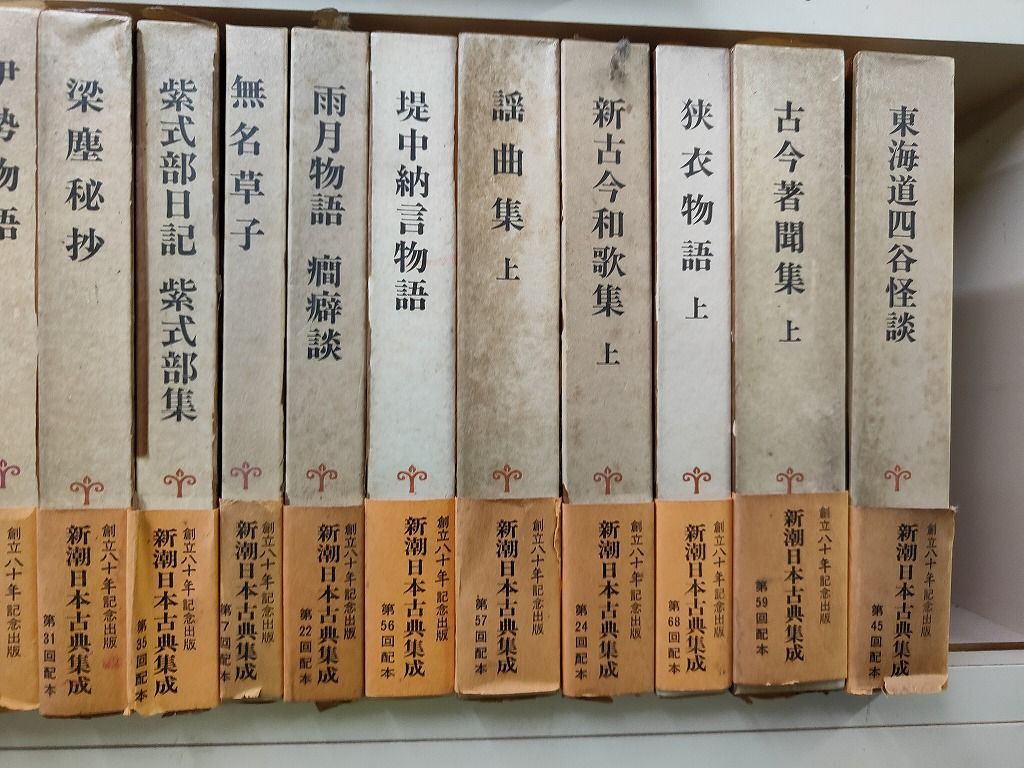 伊勢物語
創立八十年記念出版
梁塵秘抄
創立八十年記念出版
新潮日本古典集成
第31回配本
紫式部日記 紫式部集
創立八十年記念出版
新潮日本古典集成
第35回配本
無名草子
創立八十年記念出版
新潮日本古典集成
第7回配本
雨月物語 癇癖談
創立八十年記念出版
新潮日本古典集成
第22回配本
堤中納言物語
創立八十年記念出版
新潮日本古典集成
第56回配本
謡曲集 上
創立八十年記念出版
新潮日本古典集成
第57回配本
新古今和歌集 上
創立八十年記念出版
新潮日本古典集成
第24回配本
狭衣物語 上
創立八十年記念出版
新潮日本古典集成
第68回配本
古今著聞集 上
創立八十年記念出版
新潮日本古典集成
第59回配本
東海道四谷怪談
創立八十年記念出版
新潮日本古典集成
第45回配本